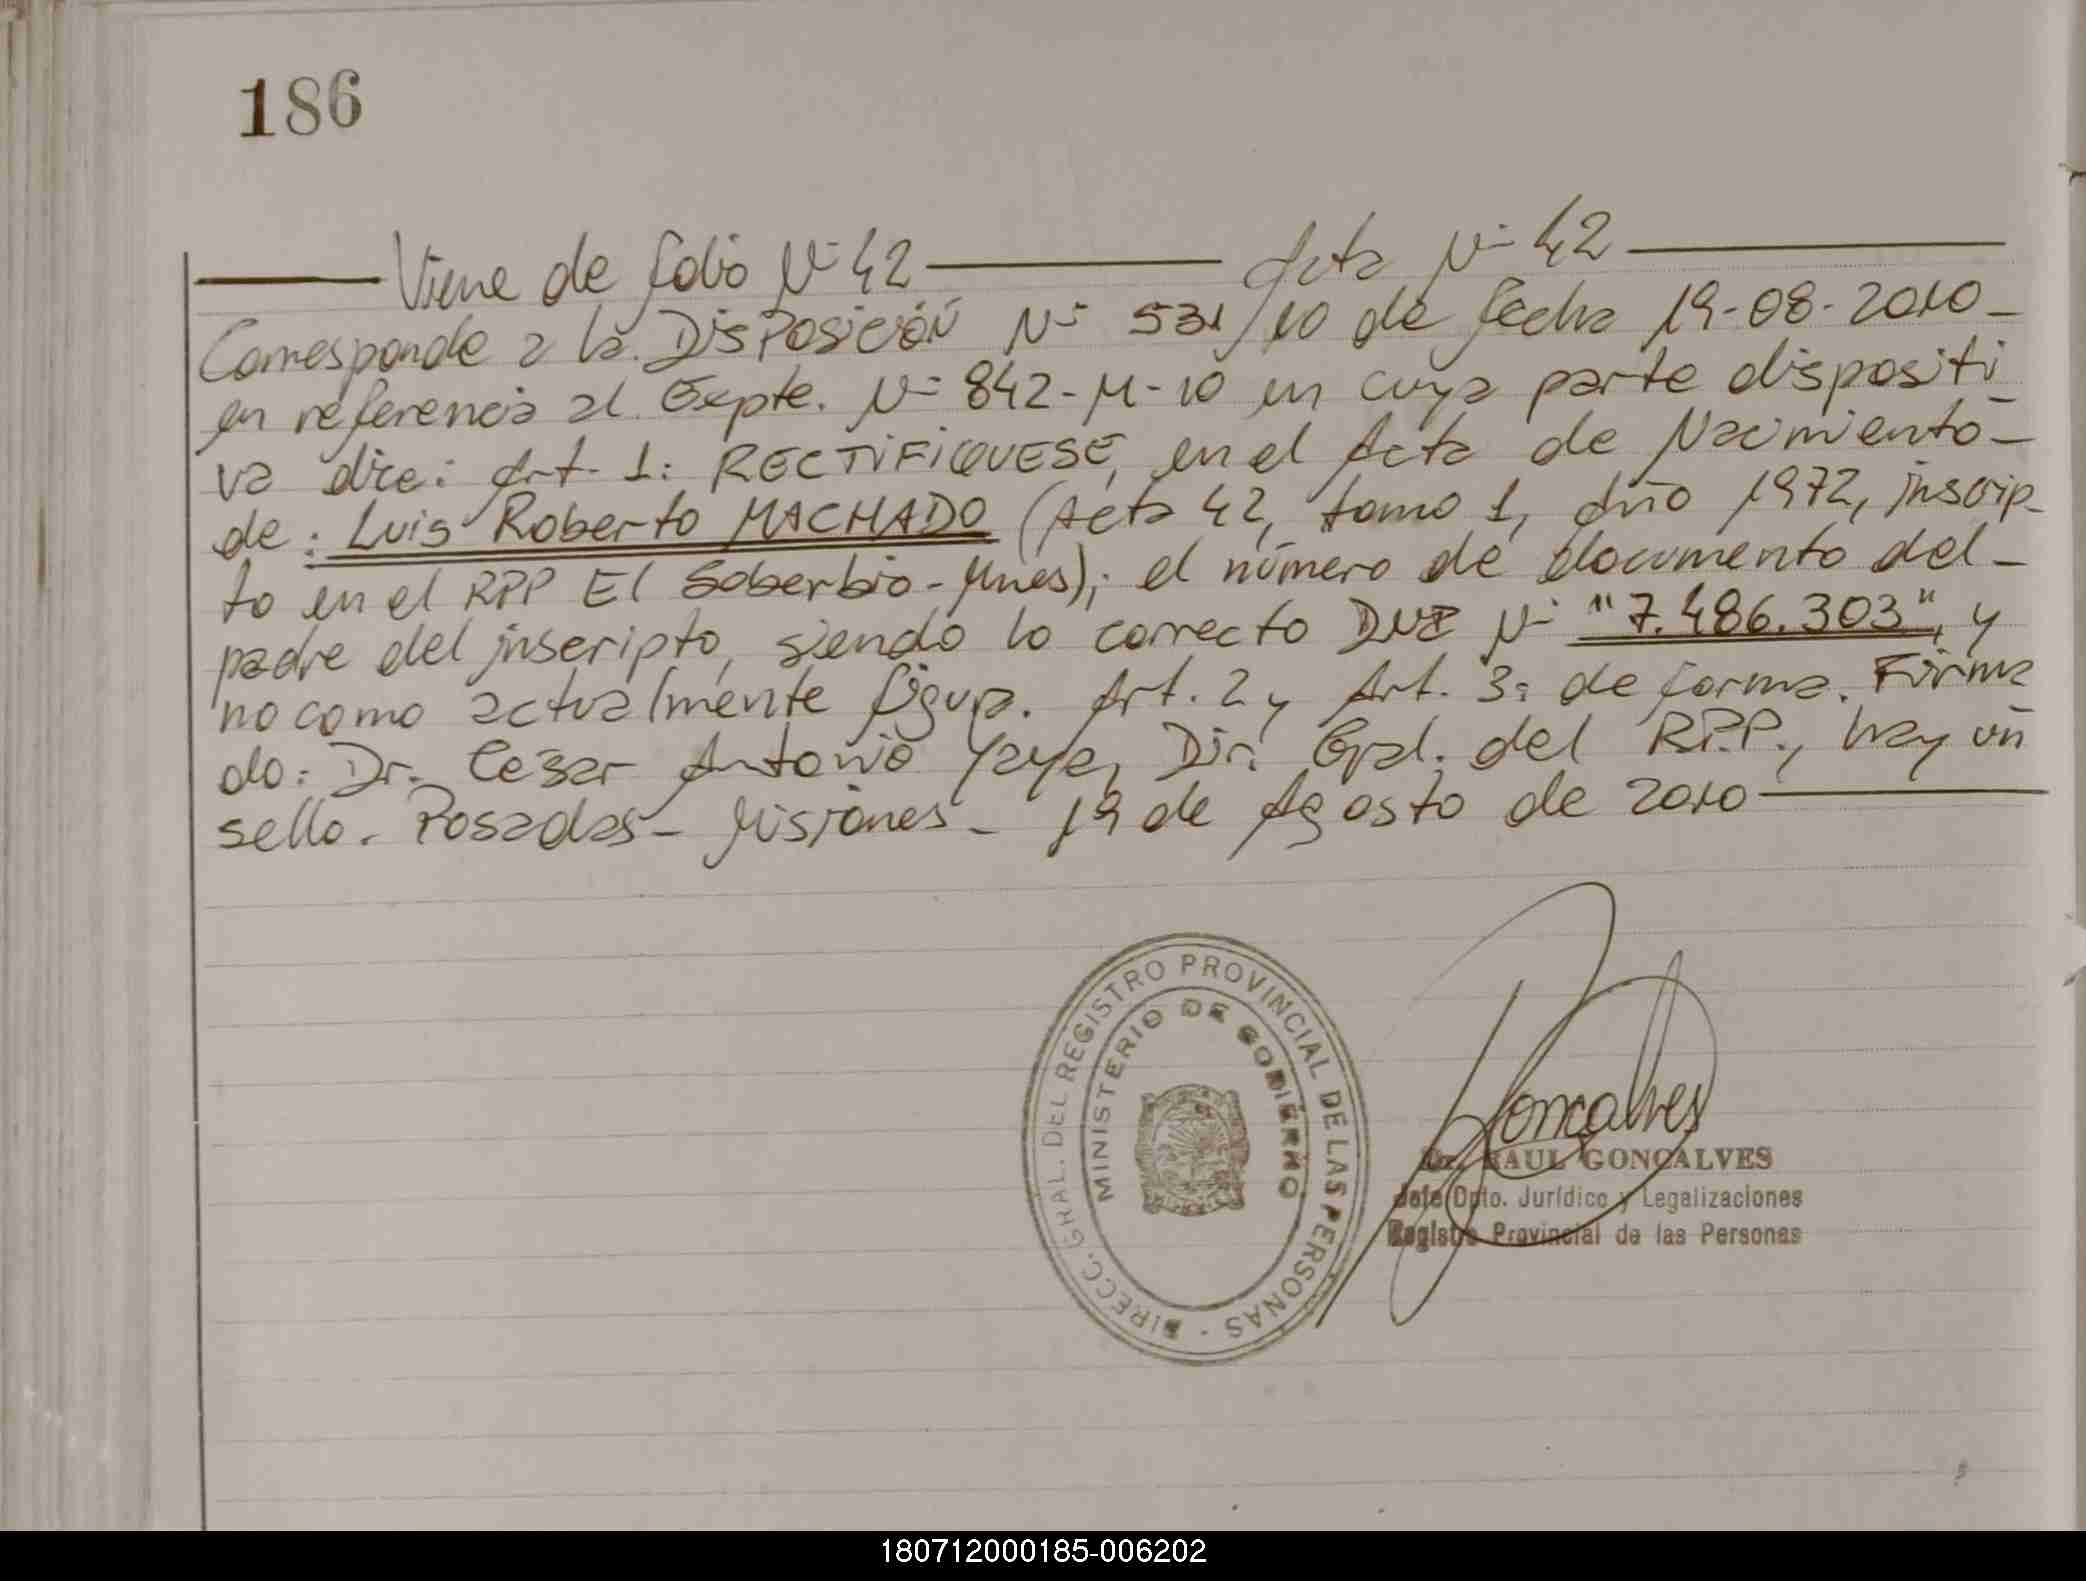 186
Viene de folio Nº 42 Acta Nº 42
Corresponde a la DISPOSICIÓN Nº 531/10 de fecha 19-08-2010-
en referencia al Expte. Nº 842-M-10 en cuya parte dispositi
va dice: Art. 1: RECTIFIQUESE, en el Acta de Nacimiento-
de: Luis Roberto MACHADO (Acta 42, tomo 1, Año 1972, inscrip-
to en el RPP El Soberbio-Mnes); el número de documento del-
padre del inscripto, siendo lo correcto DNI Nº "7.486.303", y
no como actualmente figura. Art. 2 y Art. 3: de forma. Firma
do: Dr. Cesar Antonio Yaya, Dir. Gral. del RPP., hay un
sello. Posadas-Misiones- 19 de Agosto de 2010
DIRECC. GRAL. DEL REGISTRO PROVINCIAL DE LAS PERSONAS -
MINISTERIO DE GOBIERNO
Gonçalves
Dr. RAUL GONÇALVES
Jefe Dpto. Jurídico y Legalizaciones
Registro Provincial de las Personas
180712000185-006202